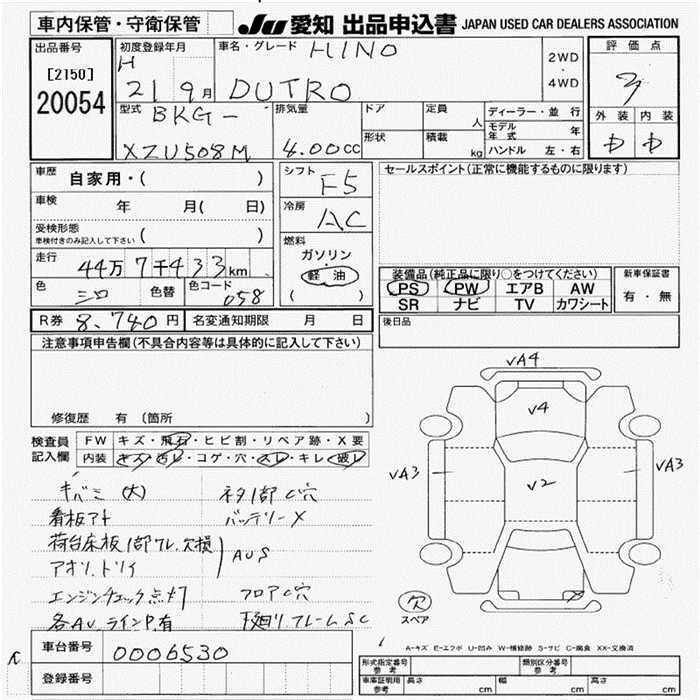 車内保管・守衛保管
JU 愛知 出品申込書 JAPAN USED CAR DEALERS ASSOCIATION
出品番号
[2150]
20054
初度登録年月
H
21 9月
車名・グレード HINO
DUTRO
2WD
・
4WD
評価点
3
外装 内装
D D
型式 BKG-
XZU508M
排気量
4.00cc
ドア
形状
定員
人
積載
kg
ディーラー・並行
モデル年式 年
ハンドル 左・右
車歴 自家用・( )
車検 年 月( 日)
受検形態
車検付きのみ記入して下さい ( )
走行 44万7千433km
色 シロ 色替 色コード 058
シフト F5
冷房 AC
燃料
ガソリン
・
軽油
( )
セールスポイント(正常に機能するものに限ります)
装備品(純正品に限り○をつけてください)
PS PW エアB AW
SR ナビ TV カワシート
新車保証書
有・無
R券 8,740円 名変通知期限 月 日
後日品
注意事項申告欄(不具合内容等は具体的に記入して下さい)
修復歴 有 〔箇所
検査員記入欄
FW キズ・飛石・ヒビ割・リペア跡・X要
内装 キズ・汚レ・コゲ・穴・スレ・キレ・破レ
キバミ(大) ネタ1部C穴
看板アト バッテリーX
荷台床板1部ワレ、欠損
アオリ、トリイ
AUS
エンジンチェック点灯 フロアC穴
各AU、ラインP有 下廻リフレームSC
VA4
V4
VA3
V2
VA3
欠
スペア
A-キズ E-エクボ U-凹み W-補修跡 S-サビ C-腐食 XX-交換済
車台番号 0006530
登録番号
形式指定番号
参考
類別区分番号
参考
車庫証明用
参考
長さ cm 幅 cm 高さ cm